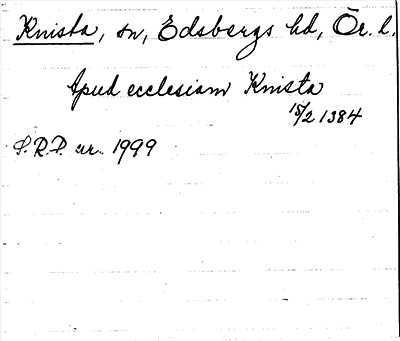 Knista, sn, Edsbergs hd, Ör. l.
Apud ecclesiam Knista
15/2 1384
S.R.P. nr. 1999